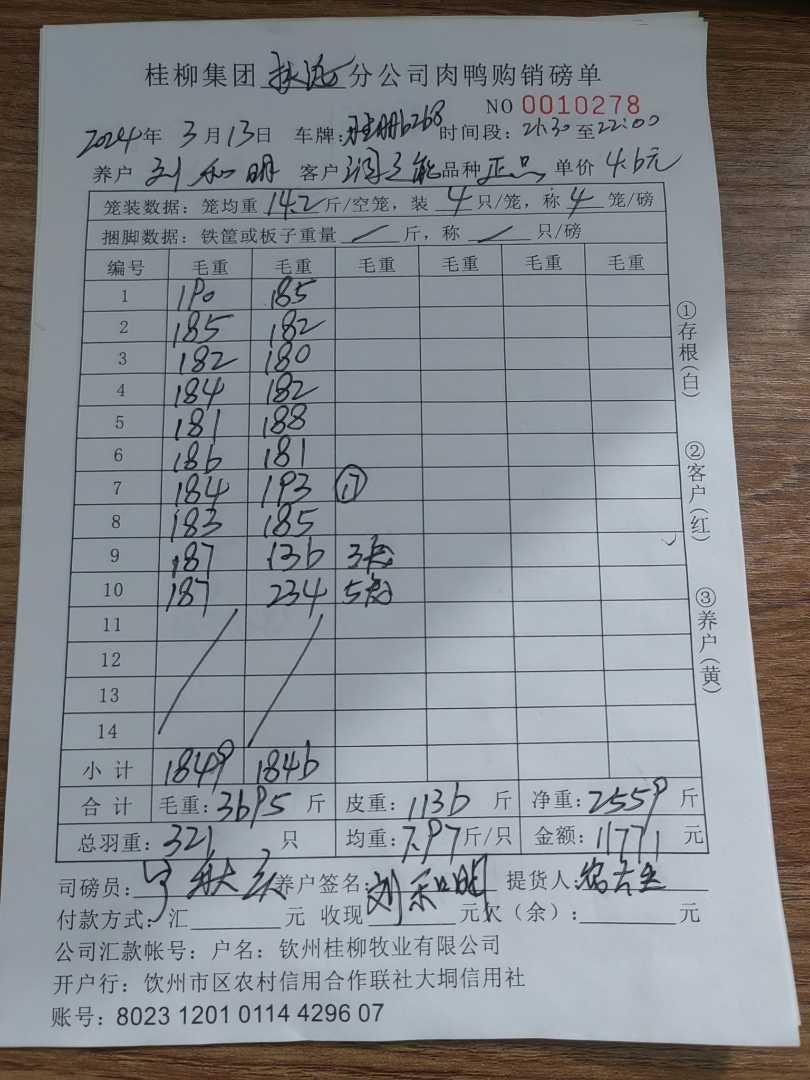 桂柳集团 分公司肉鸭购销磅单
NO 0010278
2024年 3月13日 车牌:桂 6268 时间段: 21:30至22:00
养户 刘和明 客户 品种 正品 单价 4.6元
笼装数据: 笼均重 14.2 斤/空笼, 装 4 只/笼, 称 4 笼/磅
捆脚数据: 铁筐或板子重量 / 斤, 称 / 只/磅
编号 毛重 毛重 毛重 毛重 毛重 毛重
1 190 185
2 185 182
3 182 180
4 184 182
5 181 188
6 186 181
7 184 193 ⑰
8 183 185
9 187 136 3
10 187 234 5
11
12
13
14
小计 1849 1846
合计 毛重:3695 斤 皮重:1136 斤 净重:2559 斤
总羽重:321 只 均重:7.97 斤/只 金额:11771 元
司磅员: 养户签名:刘和明 提货人:
付款方式:汇 元 收现 元 欠(余): 元
公司汇款帐号: 户名: 钦州桂柳牧业有限公司
开户行: 钦州市区农村信用合作联社大垌信用社
账号: 8023 1201 0114 4296 07
①存根(白)
②客户(红)
③养户(黄)